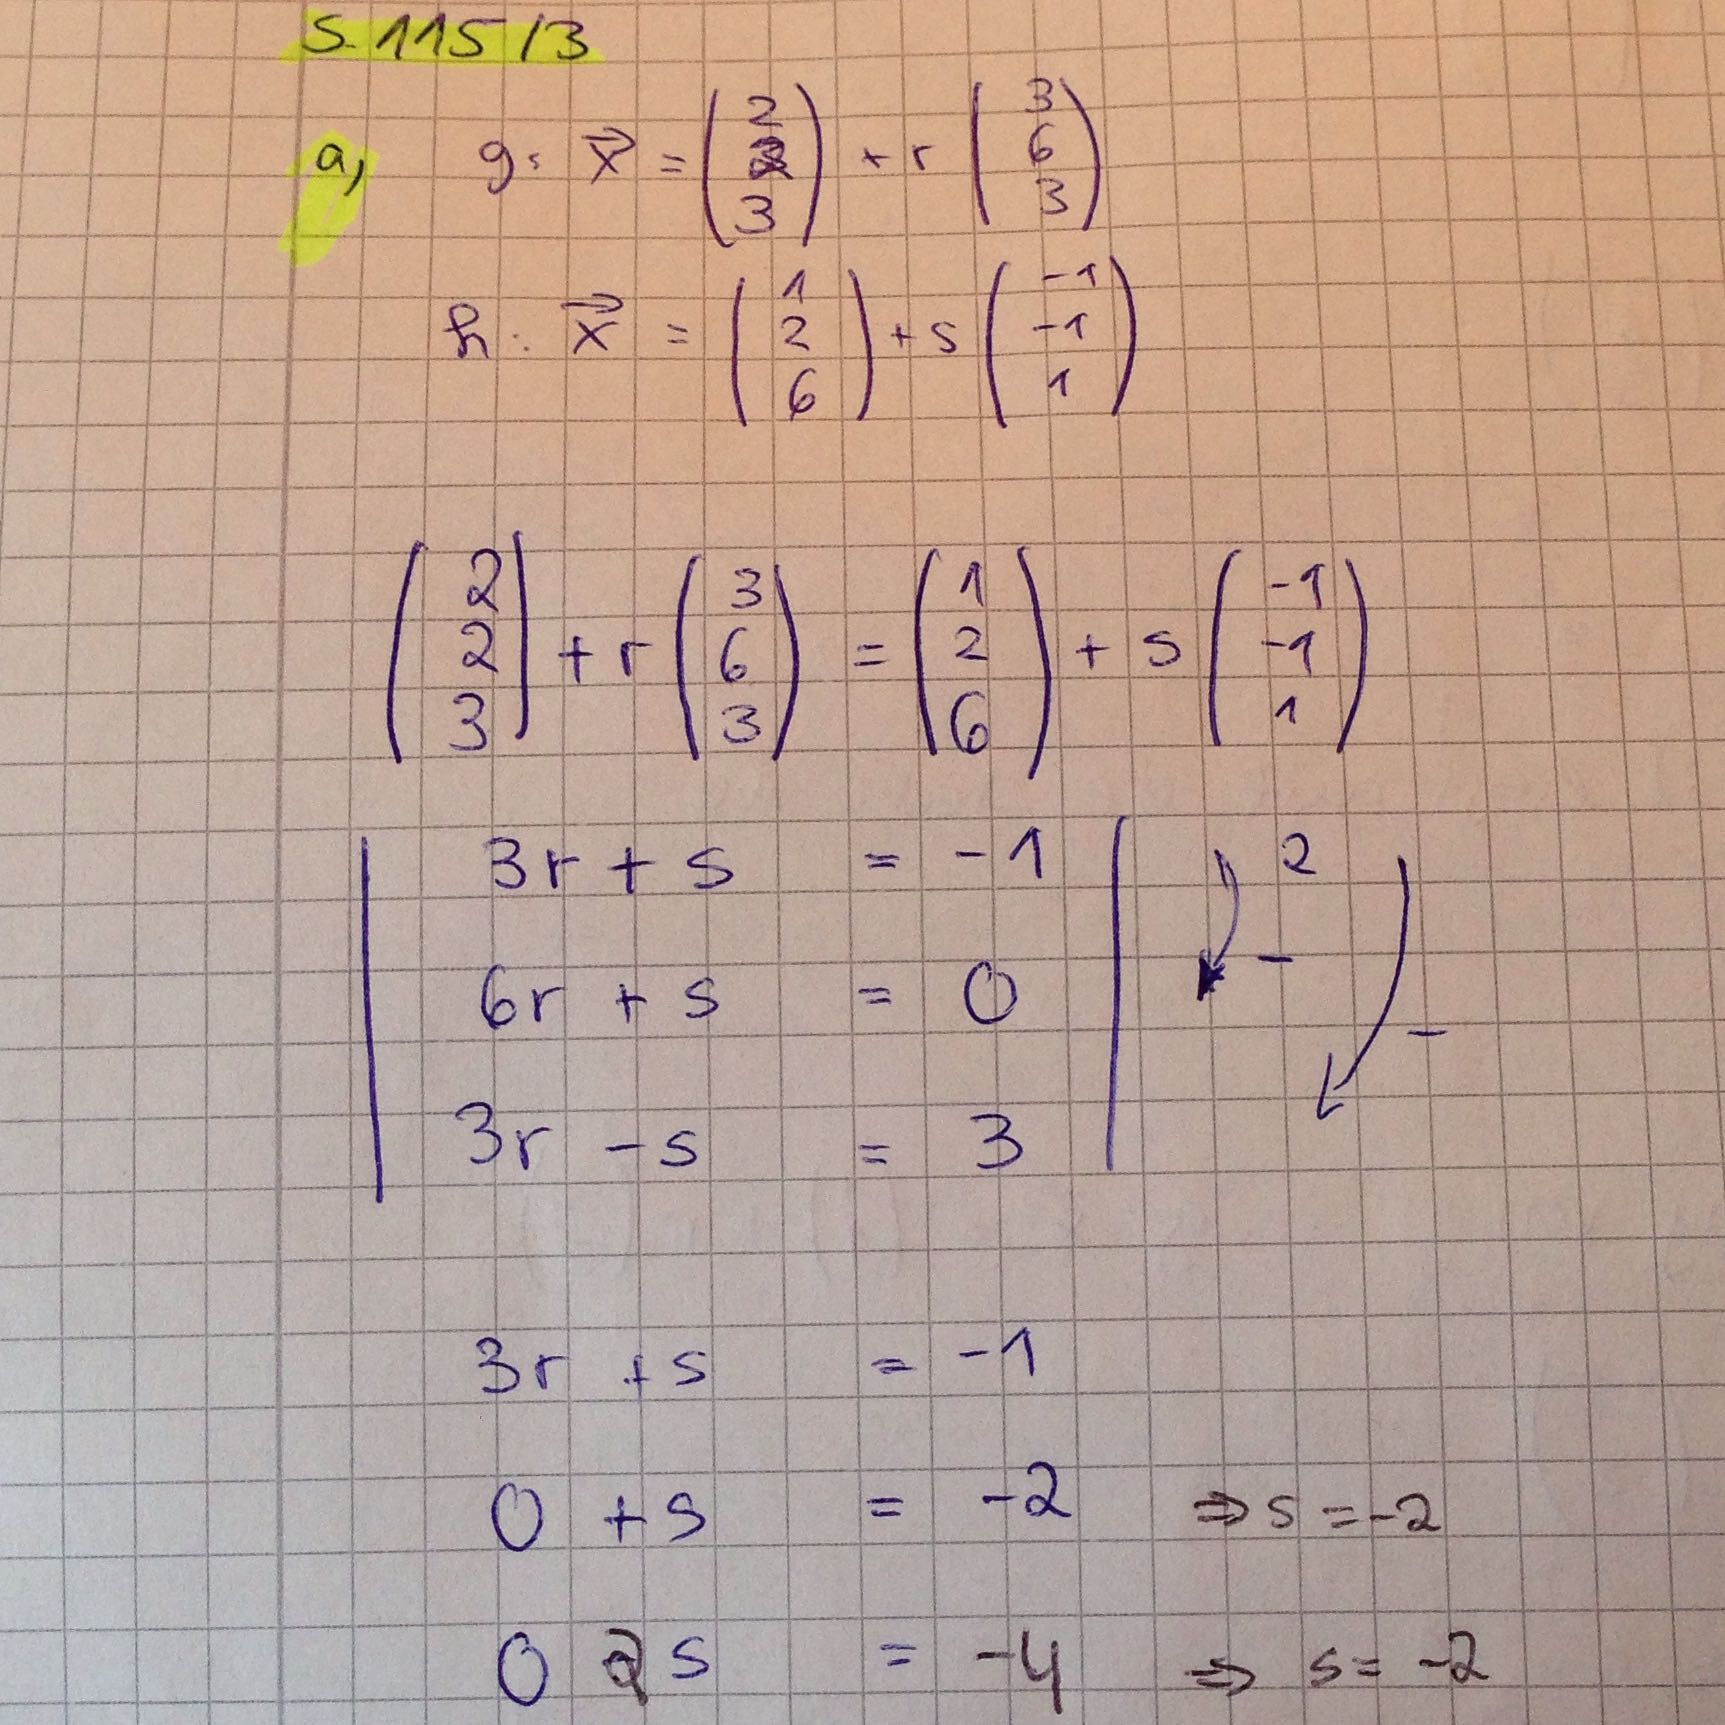 S. 115 / 3
a, g: x⃗ = (2 2 3) + r (3 6 3)
h: x⃗ = (1 2 6) + s (-1 -1 1)
(2 2 3) + r (3 6 3) = (1 2 6) + s (-1 -1 1)
3r + s = -1 | 2
6r + s = 0 | -
3r - s = 3 | -
3r + s = -1
0 + s = -2 ⇒ s = -2
0 2s = -4 ⇒ s = -2